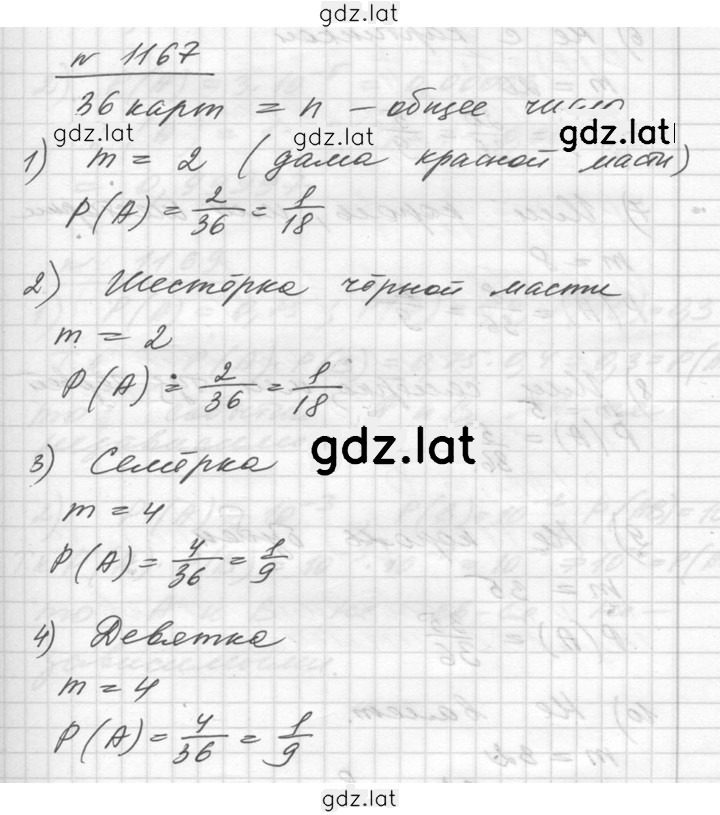 gdz.lat
№ 1167
36 карт = n – общее число
gdz.lat gdz.lat gdz.lat
1) m = 2 (дама красной масти)
P(A) = 2/36 = 1/18
2) Шестёрка чёрной масти
m = 2
P(A) = 2/36 = 1/18
gdz.lat
3) Семёрка
m = 4
P(A) = 4/36 = 1/9
4) Девятка
m = 4
P(A) = 4/36 = 1/9
gdz.lat